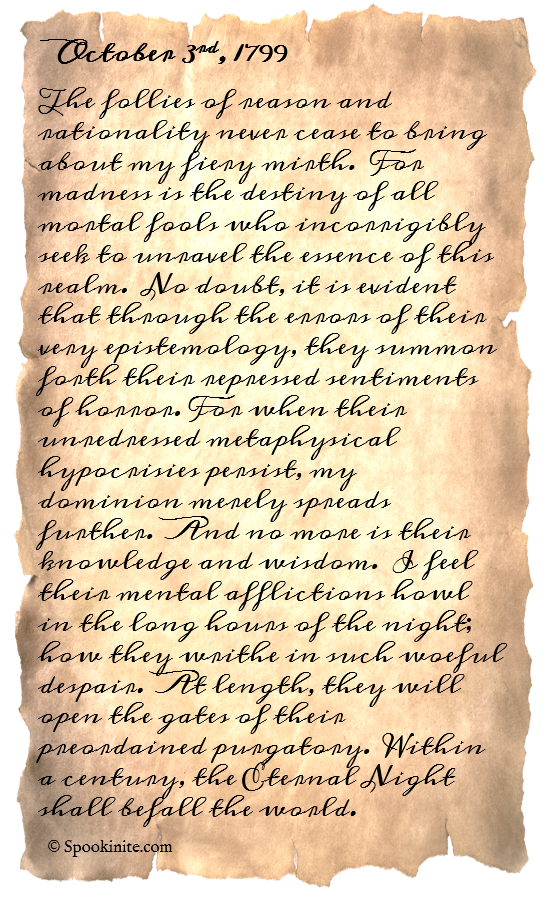 October 3rd, 1799
The follies of reason and
rationality never cease to bring
about my fiery mirth. For
madness is the destiny of all
mortal fools who incorrigibly
seek to unravel the essence of this
realm. No doubt, it is evident
that through the errors of their
very epistemology, they summon
forth their repressed sentiments
of horror. For when their
unredressed metaphysical
hypocrisies persist, my
dominion merely spreads
further. And no more is their
knowledge and wisdom. I feel
their mental afflictions howl
in the long hours of the night;
how they writhe in such woeful
despair. At length, they will
open the gates of their
preordained purgatory. Within
a century, the Eternal Night
shall befall the world.
© Spookinite.com